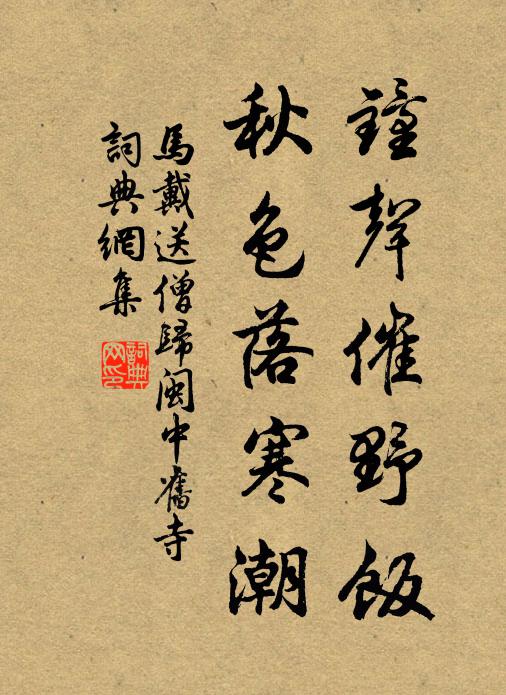 鐘聲催野飯
秋色落寒潮
馬戴送僧歸閩中舊寺
詞典網集
詞典
网印